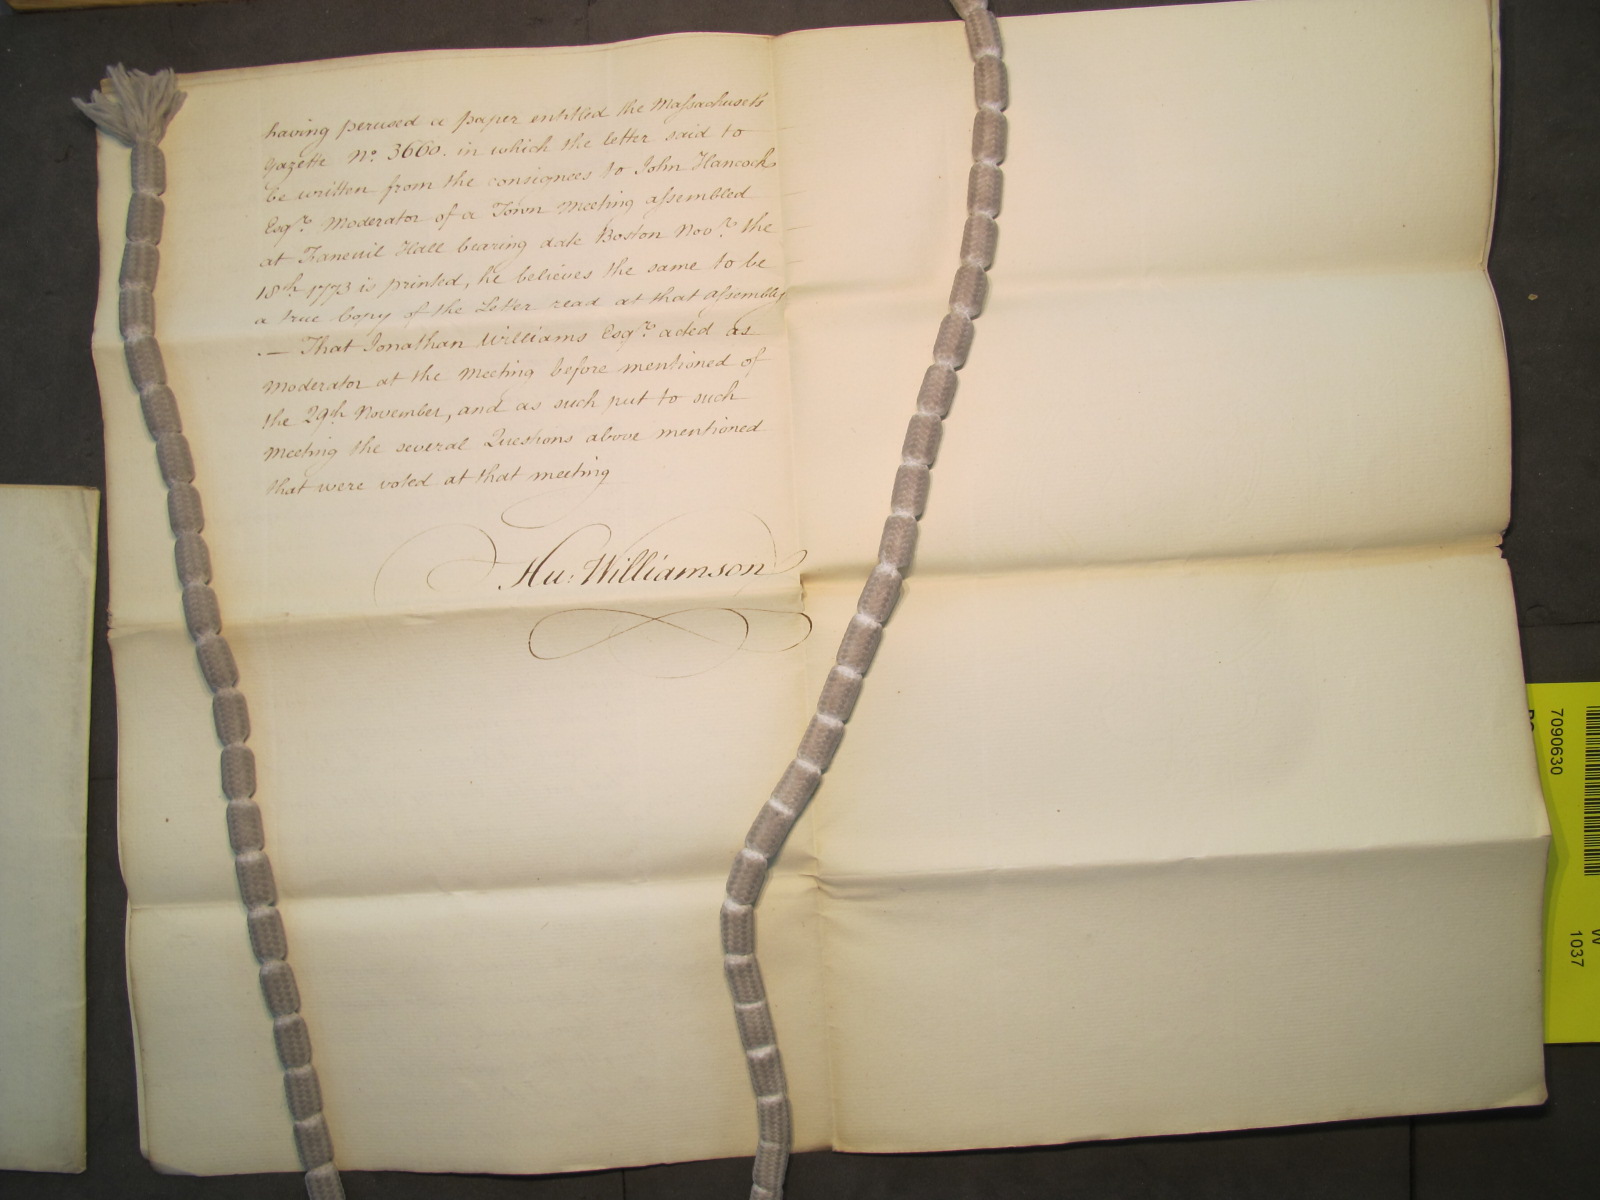 having perused a paper entitled the Massachusets
Gazette No. 3660. in which the letter said to
be written from the consignees to John Hancock
Esqr. Moderator of a Town Meeting assembled
at Faneuil Hall bearing date Boston Novr. the
18th 1773 is printed, he believes the same to be
a true Copy of the Letter read at that assembly
. — That Jonathan Williams Esqr. acted as
Moderator at the Meeting before mentioned of
the 29th November, and as such put to such
Meeting the several Questions above mentioned
that were voted at that meeting
Hu: Williamson
7090630
W
1037